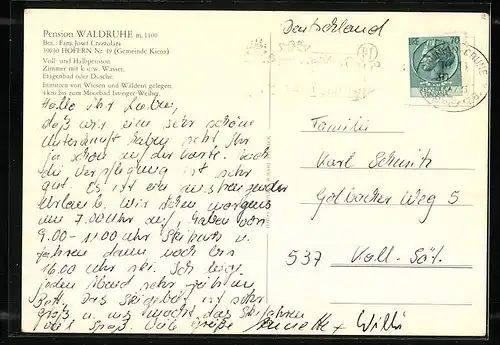 Pension WALDRUHE m. 1100
Bes.: Fam. Josef Crazzolara
39030 HOFERN Nr. 49 (Gemeinde Kiens)
Voll- und Halbpension
Zimmer mit k. u. w. Wasser,
Etagenbad oder Dusche.
Inmitten von Wiesen und Wäldern gelegen.
4 km bis zum Moorbad Issinger-Weiher.
Hallo ihr Lieben,
daß wir eine sehr schöne
Unterkunft haben seht Ihr
ja schon auf der Karte. Auch
die Verpflegung ist sehr
gut. Es ist ein anstrengender
Urlaub. Wir stehen morgens
um 7.00 Uhr auf, haben von
9.00 - 11.00 Uhr Skikurs u.
fahren dann noch bis
16.00 Uhr ski. Ich liege
jeden Abend sehr zeitig im
Bett. Das Skigebiet ist sehr
groß u. uns macht das Skifahren
viel Spaß. Viele Grüße Annette + Willi
Deutschland
70
Familie
Karl Schmitz
Golbacher Weg 5
537 Kall - Söt.